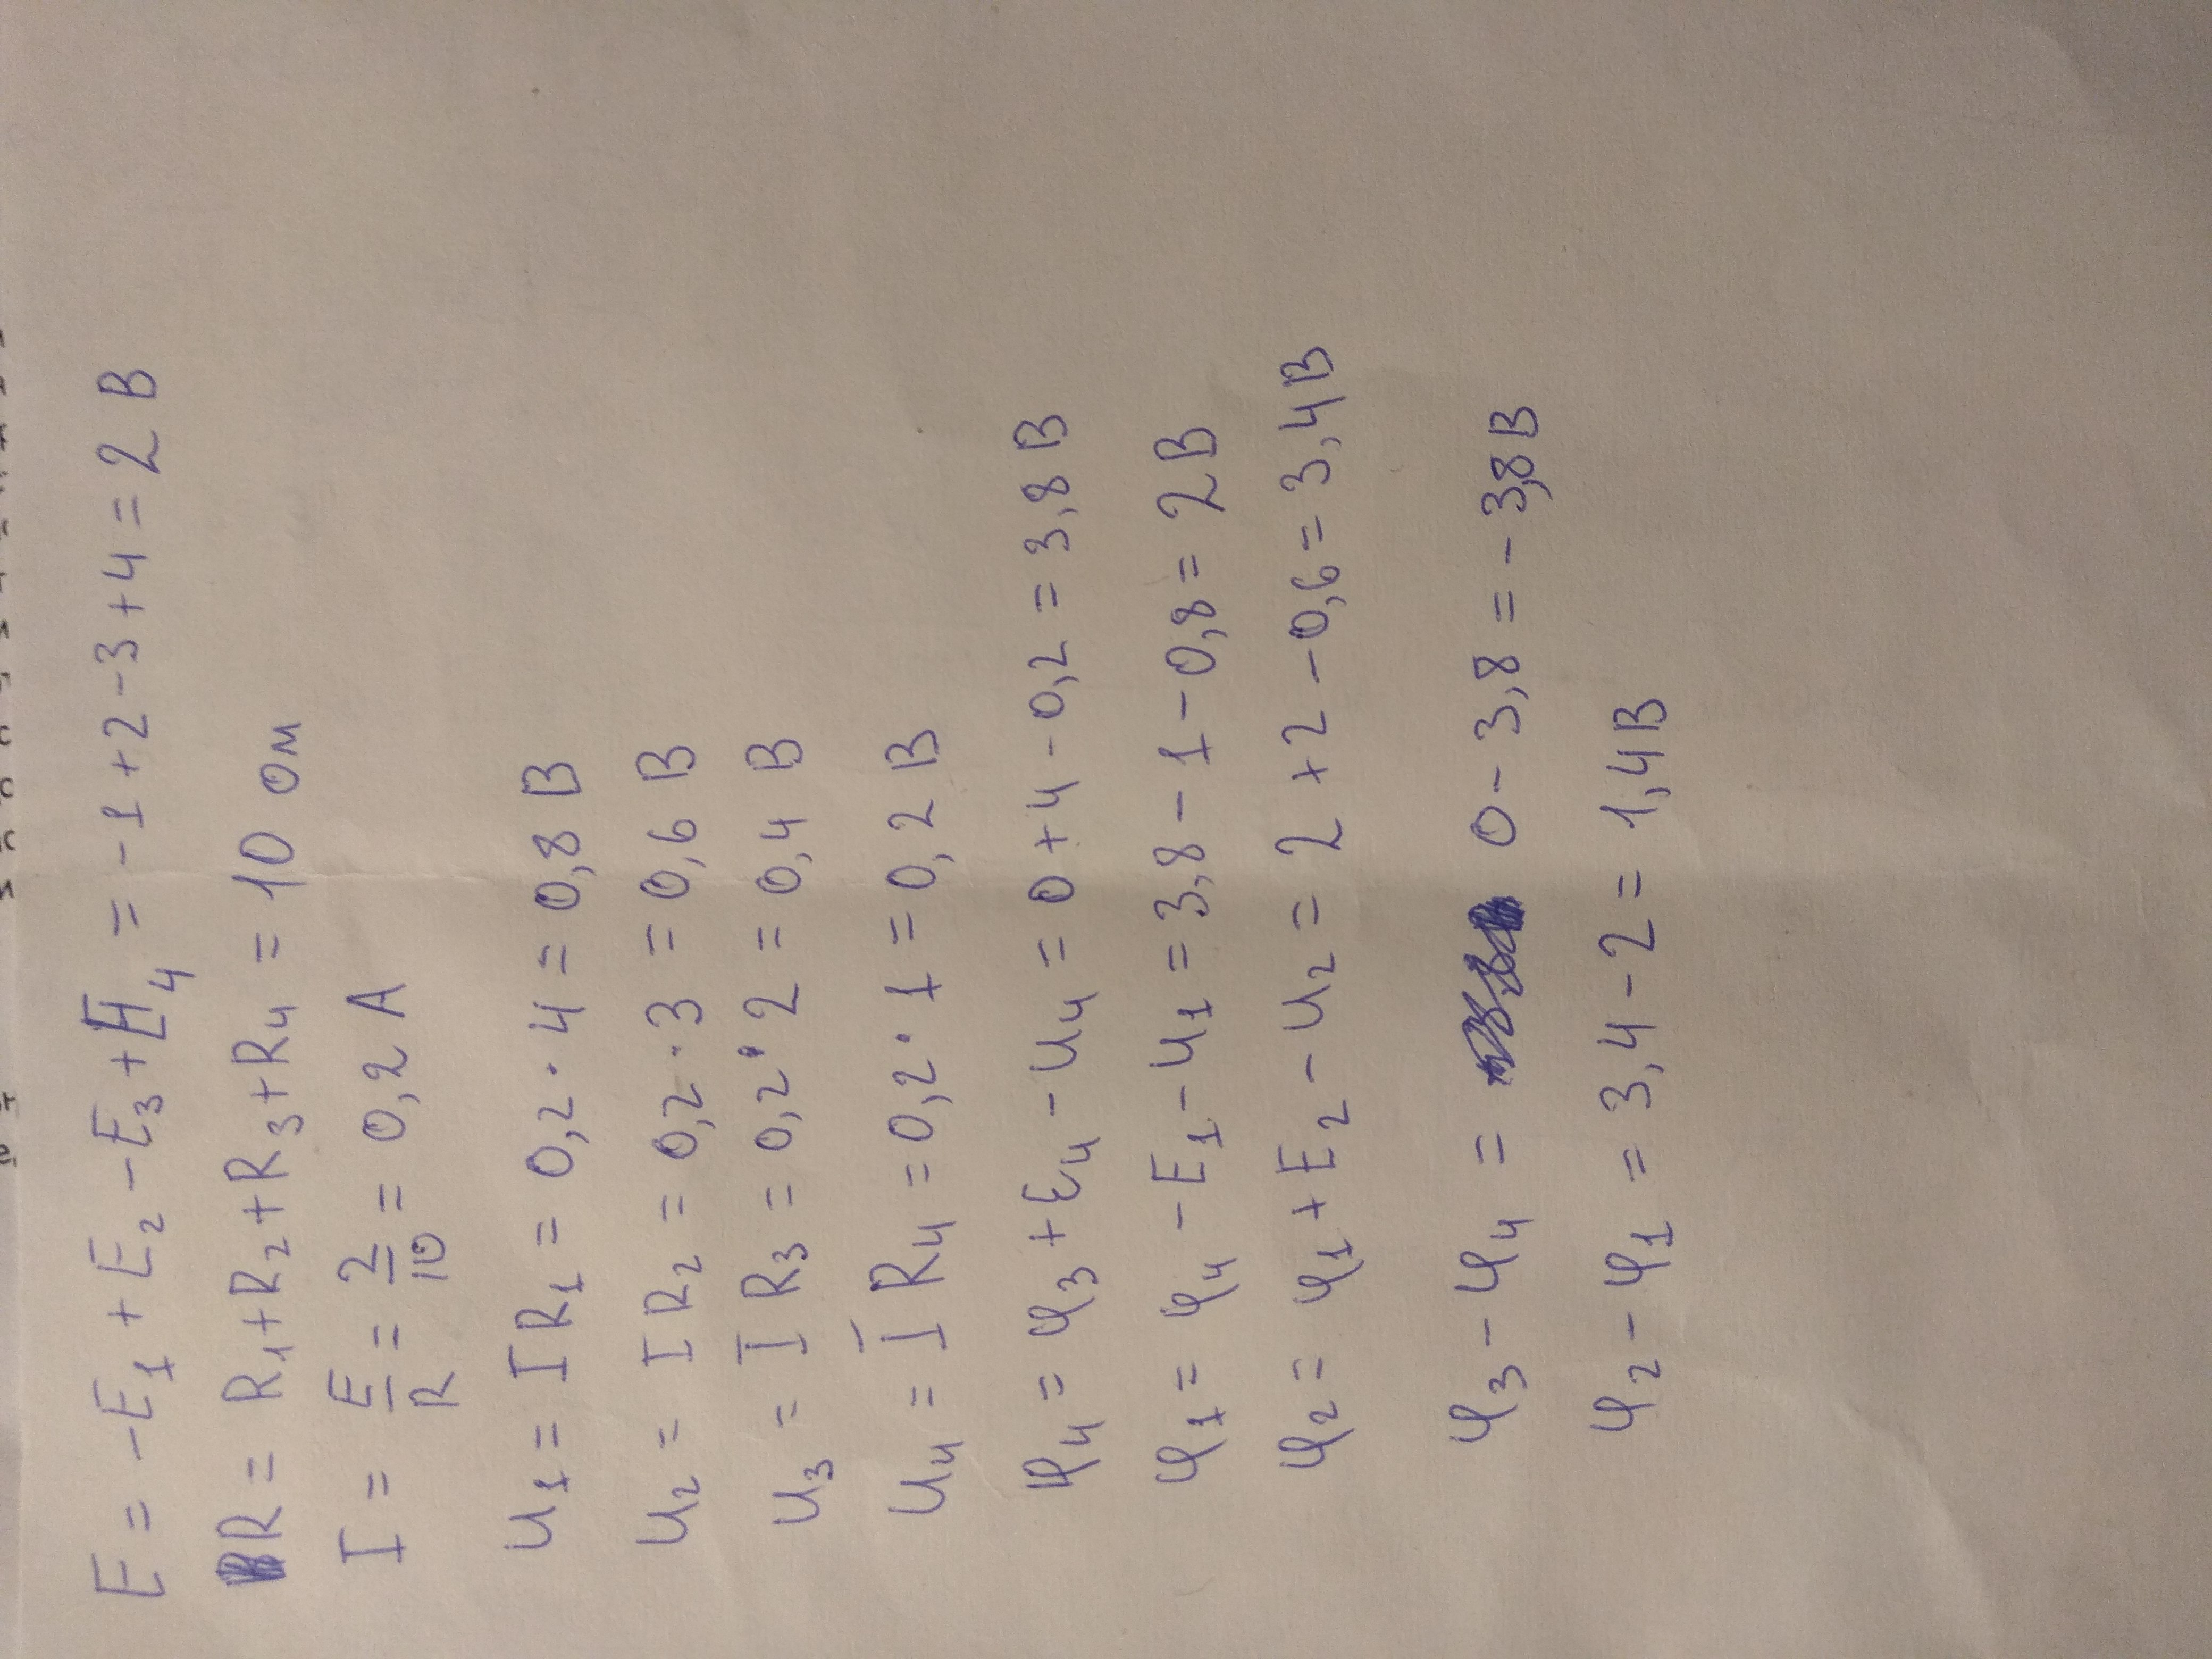 E = -E₁ + E₂ - E₃ + E₄ = -1 + 2 - 3 + 4 = 2 В
R = R₁ + R₂ + R₃ + R₄ = 10 ом
I = E/R = 2/10 = 0,2 А
U₁ = I R₁ = 0,2 · 4 = 0,8 В
U₂ = I R₂ = 0,2 · 3 = 0,6 В
U₃ = I R₃ = 0,2 · 2 = 0,4 В
U₄ = I R₄ = 0,2 · 1 = 0,2 В
φ₄ = φ₃ + E₄ - U₄ = 0 + 4 - 0,2 = 3,8 В
φ₁ = φ₄ - E₁ - U₁ = 3,8 - 1 - 0,8 = 2 В
φ₂ = φ₁ + E₂ - U₂ = 2 + 2 - 0,6 = 3,4 В
φ₃ - φ₄ = 0 - 3,8 = -3,8 В
φ₂ - φ₁ = 3,4 - 2 = 1,4 В